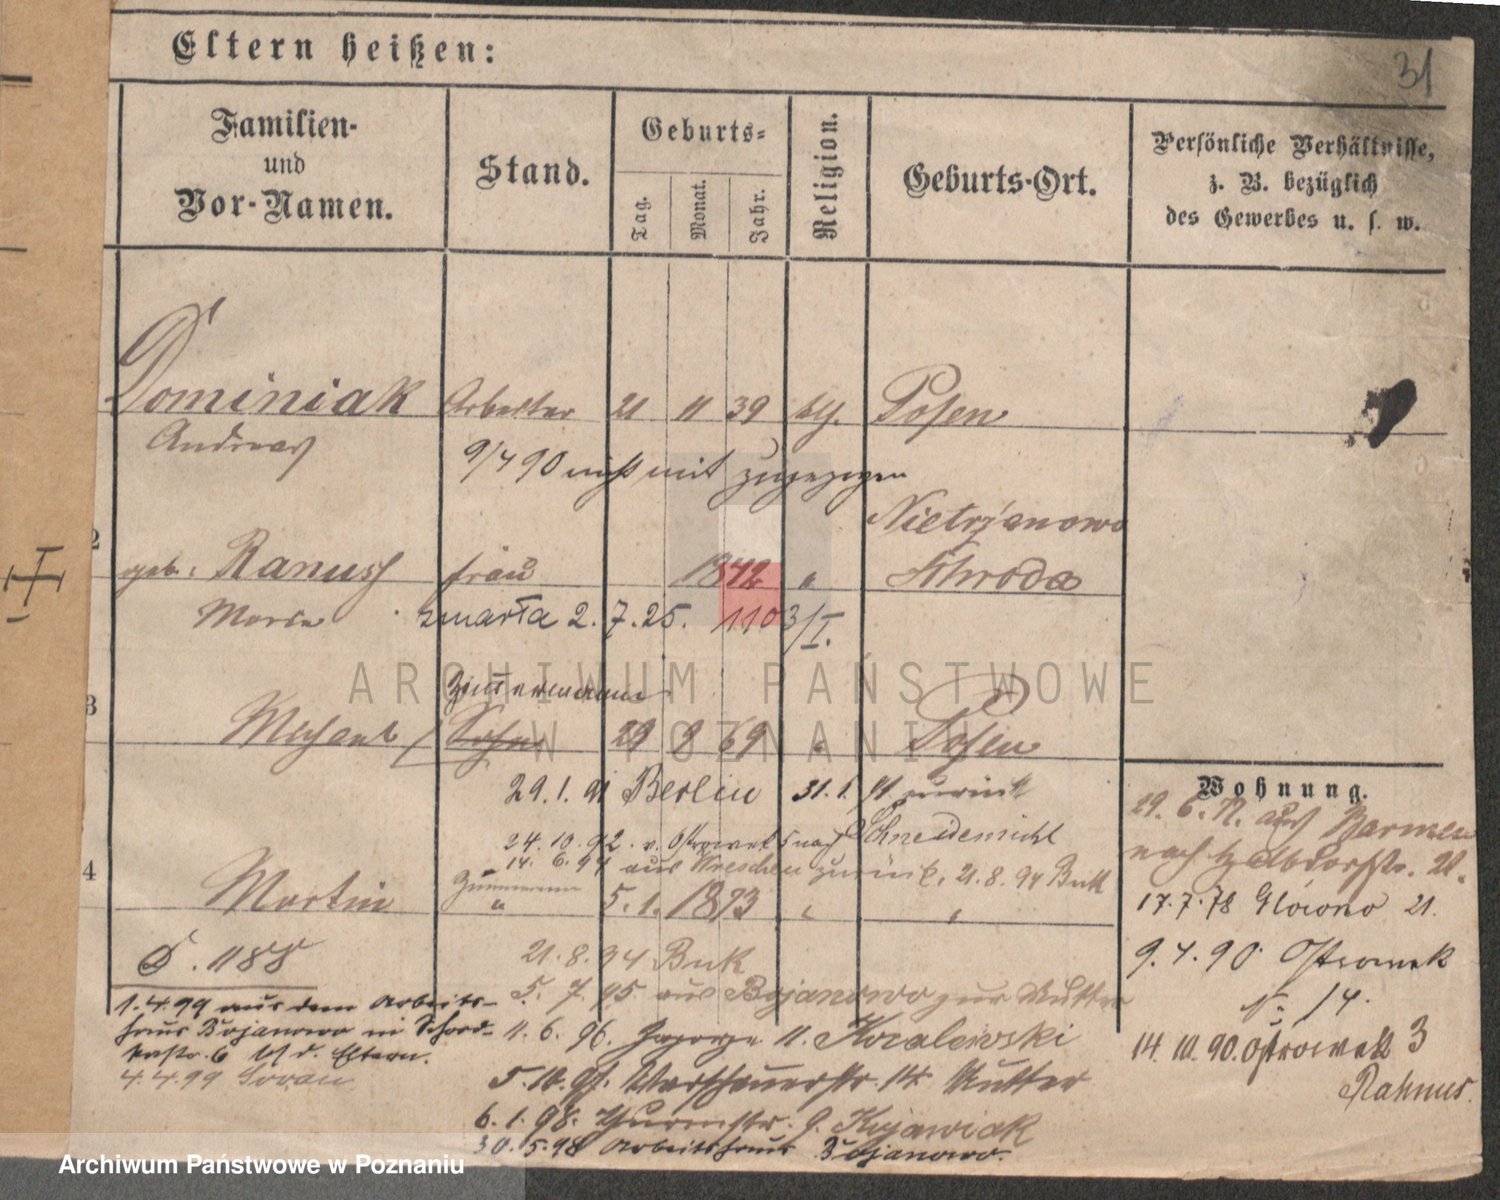 31
Eltern heißen:
Familien-
und
Vor-Namen.
Stand.
Geburts-
Tag.
Monat.
Jahr.
Religion.
Geburts-Ort.
Persönliche Verhältnisse,
z. B. bezüglich
des Gewerbes u. s. w.
Dominiak Arbeiter 21 11 39 Posen
Andreas
9/4 90 nicht mit zugezogen
Nietrzanowo
2 geb. Ranusch Frau 1842 " Schroda
zmarła 2.7.25. 1103/I.
Zimmermann
3 Sohn 29 9 69 " Posen
29.1.91 Berlin 31.1. zurück
24.10.92. v. Ostrowek nach Schneidemühl
14.6.94 aus Wreschen zurück, 21.8.94 Buk
Zimmermann
4 Martin " 5.1. 1873 " "
21.8.94 Buk
5.7.95 aus Bojanowo zur Mutter
11.6.96. 11. Kozalewski
5.10.97. Warschauerstr. 14. Mutter
6.1.98. 9. Kujawiak
30.5.98 Arbeitshaus Bojanowo.
D. 1188
1.4.99 aus dem Arbeits-
haus Bojanowo in Schrod-
kastr. 6 bei d. Eltern.
4.4.99 Sorau
Wohnung.
29.6. aus
nach
17.7.78 Glowno 21.
9.4.90 Ostrowek
No 14.
14.10.90. Ostrowek 3
Rahnus.
ARCHIWUM PAŃSTWOWE
W POZNANIU
Archiwum Państwowe w Poznaniu